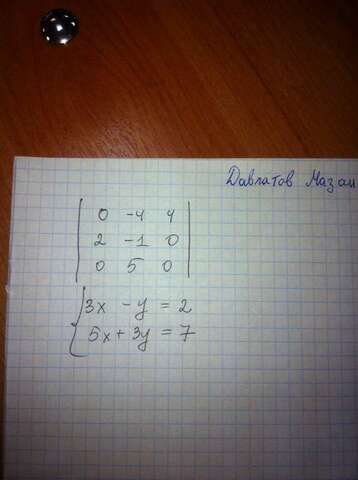 Давлатов Мазан
| 0 -4 4 |
| 2 -1 0 |
| 0 5 0 |
{ 3x - y = 2
5x + 3y = 7